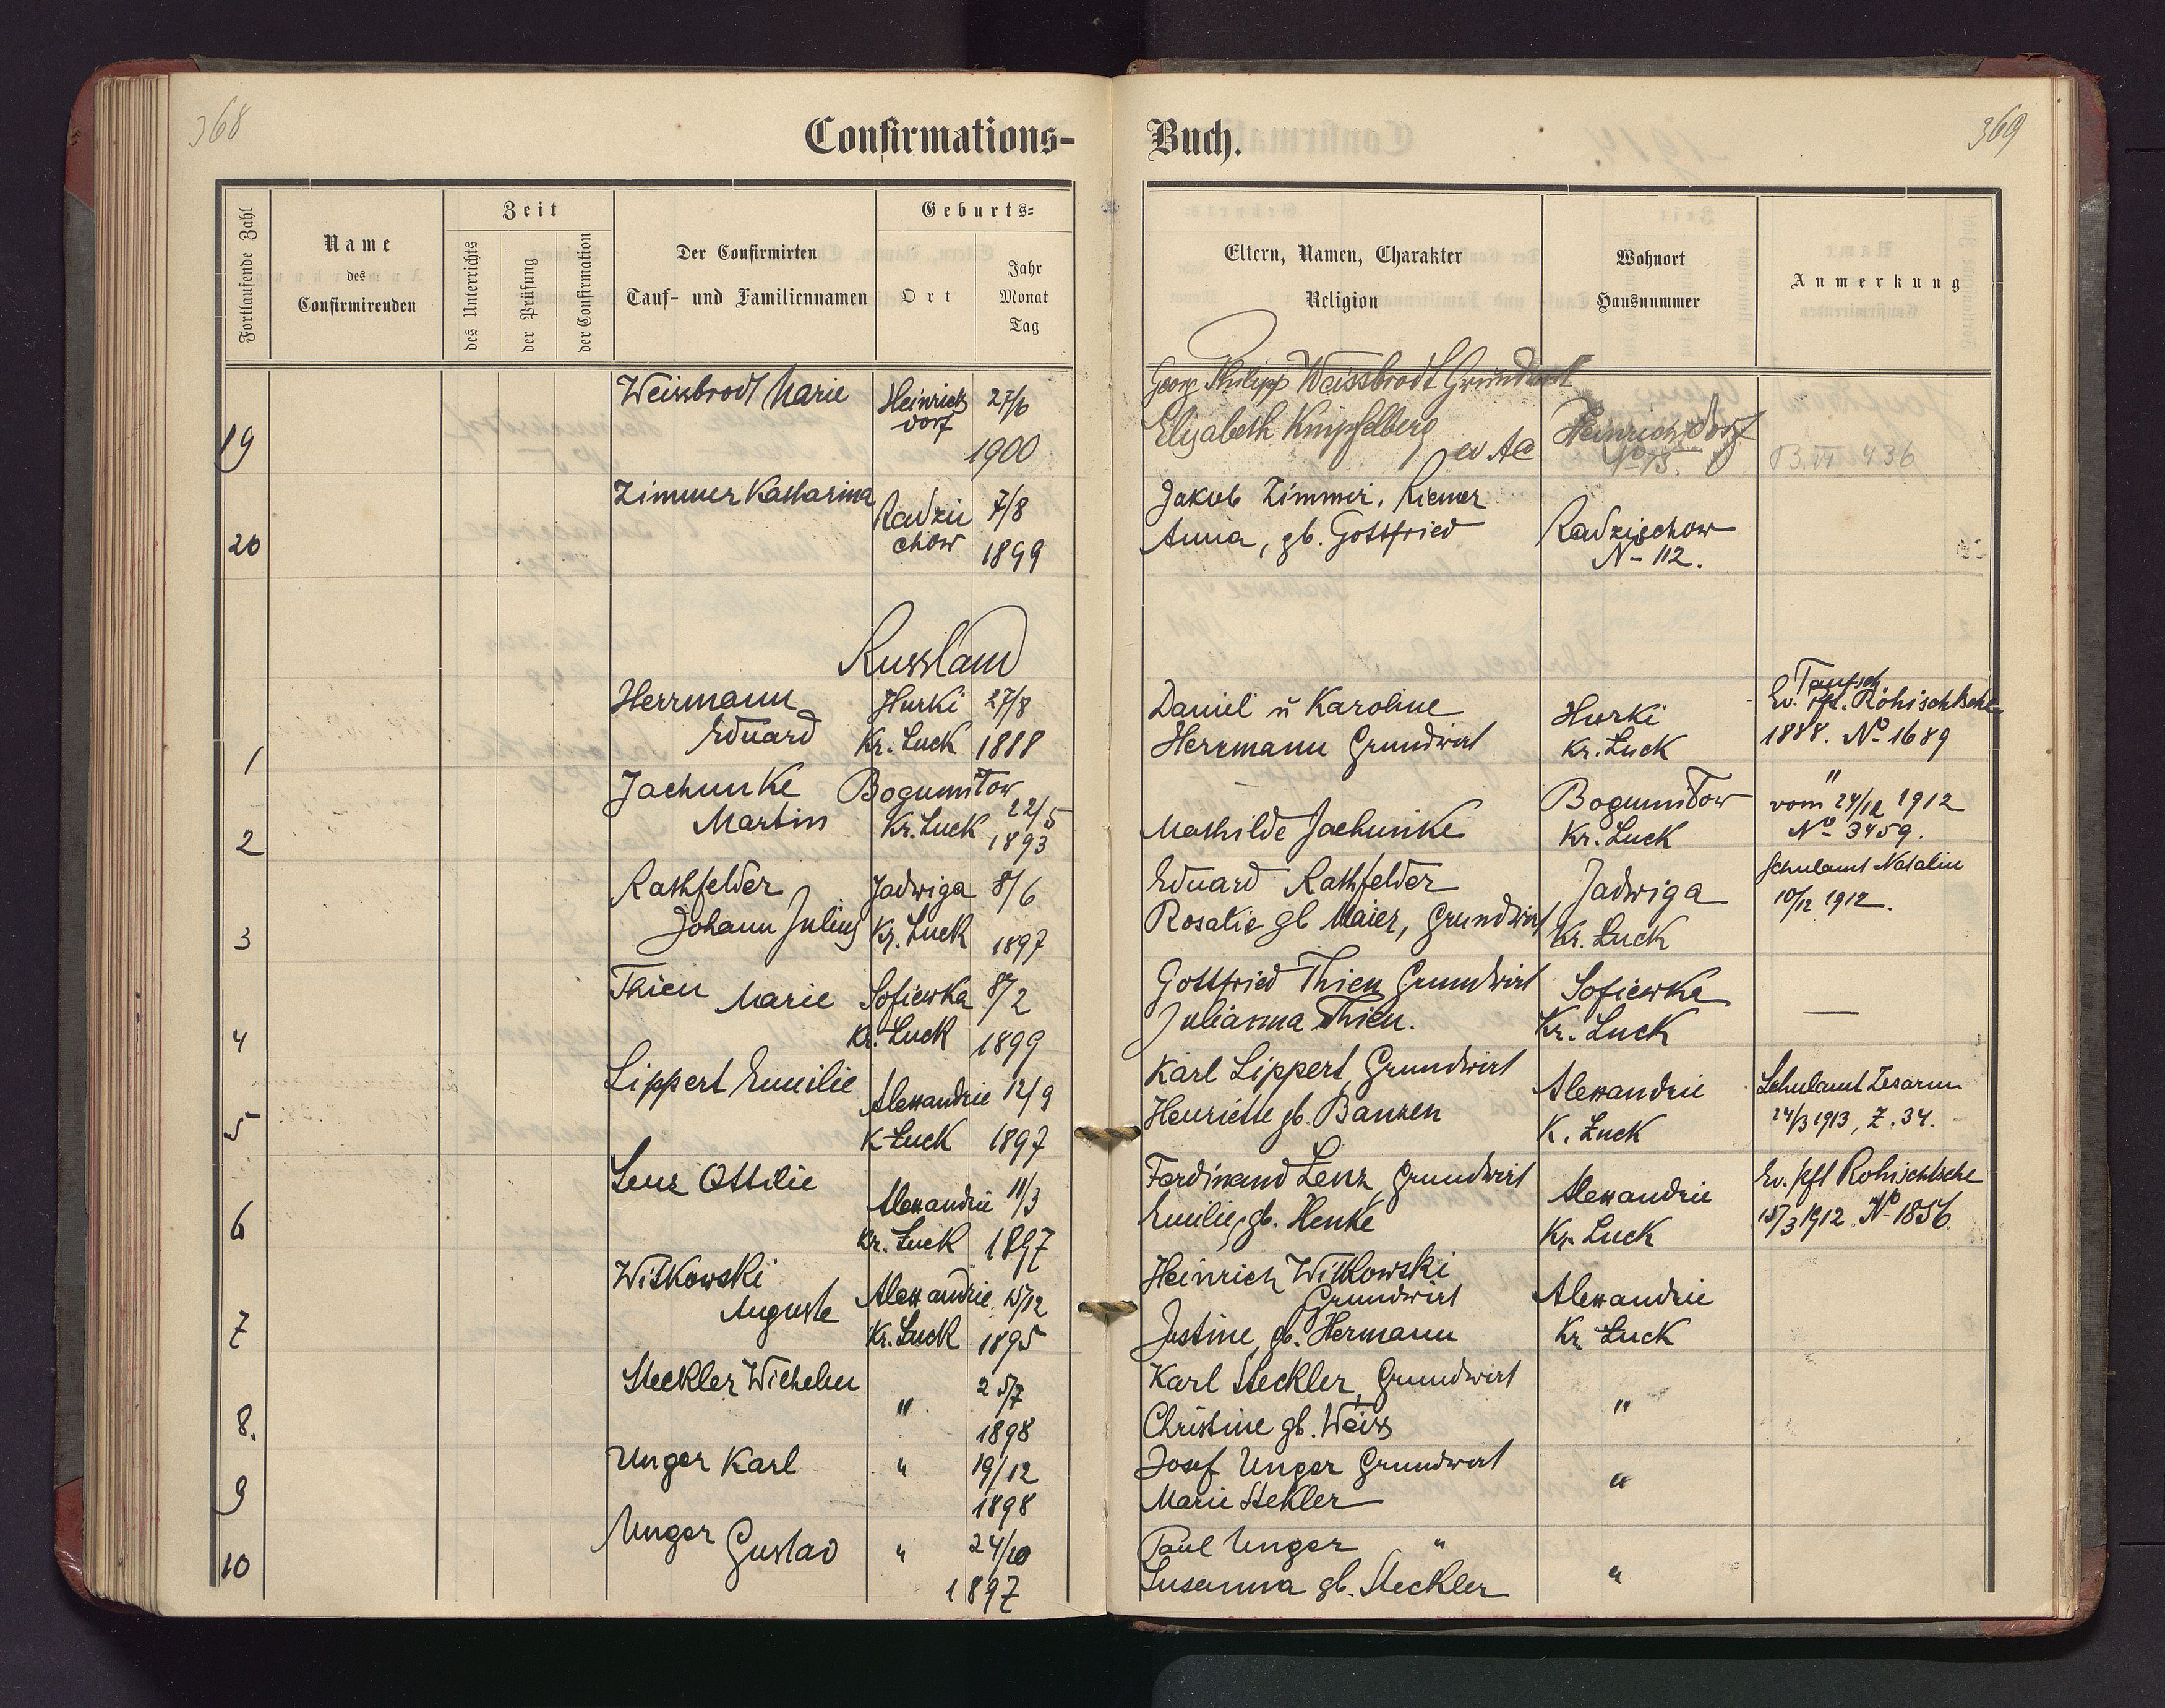 368
369
Confirmations-
Buch.
Fortlaufende Zahl
Name
des
Confirmirenden
Zeit
des Unterrichts
der Prüfung
der Confirmation
Der Confirmirten
Tauf- und Familiennamen
Geburts-
Ort
Jahr
Monat
Tag
Eltern, Namen, Charakter
Religion
Wohnort
Hausnummer
Anmerkung
19
Weissbrodt Marie
Heinrichs
dorf
27/6
1900
Georg Philipp Weissbrodt Grundwirt
Elisabeth Kinpfelberg
ev AC
Heinrichsdorf
B. VI 436
20
Zimmer Katharina
Radzie
chow
7/8
1899
Jakob Zimmer, Riemer
Anna, gb. Gottfried
Radziechow
N- 112.
Russland
1
Herrmann
Eduard
Hurki
Kr. Luck
27/8
1888
Daniel u Karoline
Herrmann Grundwirt
Hurki
Kr. Luck
Taufsch
Ev. Pft. Rohischtsche
1888. No 1689
2
Jachunke
Martin
Bogumiłow
Kr. Luck
22/5
1893
Mathilde Jachunke
Bogumiłow
Kr. Luck
"
vom 24/12 1912
No 3459.
3
Rathfelder
Johann Julius
Jadwiga
Kr. Luck
8/6
1897
Eduard Rathfelder
Rosalie gb Maier, Grundwirt
Jadwiga
Kr. Luck
Schulamt Natalin
10/12 1912.
4
Thien Marie
Sofiewka
Kr. Luck
8/2
1899
Gottfried Thien Grundwirt
Julianna Thien.
Sofiewka
Kr. Luck
—
5
Lippert Emilie
Alexandrie
K-Luck
12/9
1897
Karl Lippert, Grundwirt
Henriette gb. Banzen
Alexandrie
K. Luck
Schulamt Zesarin
24/3 1913, Z. 34.
6
Lenz Ottilie
Alexandrie
Kr. Luck
11/3
1897
Ferdinand Lenz, Grundwirt
Emilie, gb. Henke
Alexandrie
Kr. Luck
Ev. Pft Rohischtsche
15/3 1912 No 1856
7
Witkowski
Auguste
Alexandrie
Kr. Luck
15/12
1895
Heinrich Witkowski
Grundwirt
Justine, gb. Hermann
Alexandrie
Kr Luck
8.
Steckler Wilhelm
"
25/7
1898
Karl Steckler, Grundwirt
Christine gb. Weiss
"
9
Unger Karl
"
19/12
1898
Josef Unger Grundwirt
Marie Stekler
"
10
Unger Gustav
"
24/10
1897
Paul Unger "
Susanna gb. Steckler
"